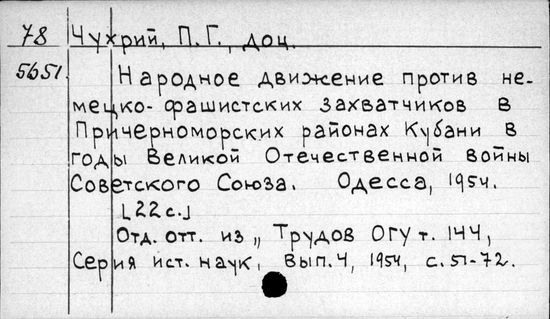 78 Чухрий, П.Г., доц.
5651. Народное движение против не-
мецко-фашистских захватчиков в
Причерноморских районах Кубани в
годы Великой Отечественной войны
Советского Союза. Одесса, 1954.
[22 с.]
Отд. отт. из „Трудов ОГУ т. 144,
Серия ист. наук, вып. 4, 1954, с. 51-72.